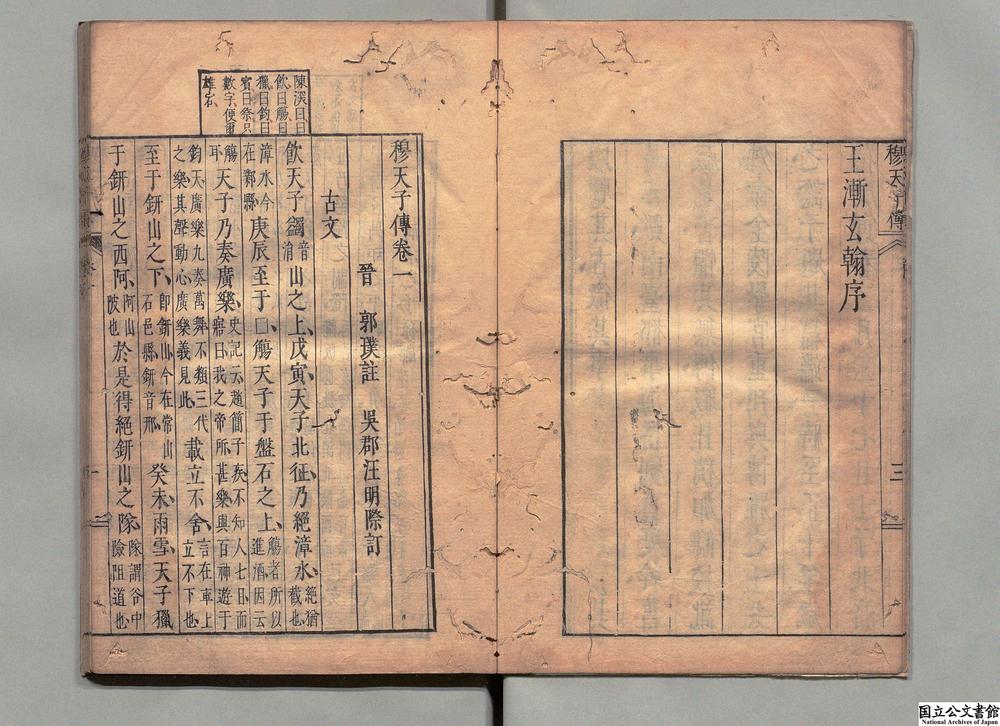 穆天子傳
三
王漸玄翰序
穆天子傳卷一
晉 郭璞註 吳郡汪明際訂
古文
陳深曰曰
飲曰觴曰
獵曰鈞曰
賓曰祭只
數字便爾
雄古
飲天子蠲音消山之上戊寅天子北征乃絕漳水絕猶截也
漳水今在鄴縣庚辰至于□觴天子于盤石之上觴者所以進酒因云
觴耳天子乃奏廣樂史記云趙簡子疾不知人七日而寤曰我之帝所甚樂與百神遊于
鈞天廣樂九奏萬舞不類三代之樂其聲動心廣樂義見此載立不舍言在車上立不下也
至于鈃山之下即鈃山今在常山石邑縣鈃音邢癸未雨雪天子獵
于鈃山之西阿阿山陂也於是得絕鈃山之隊隊謂谷中險阻道也
国立公文書館
National Archives of Japan